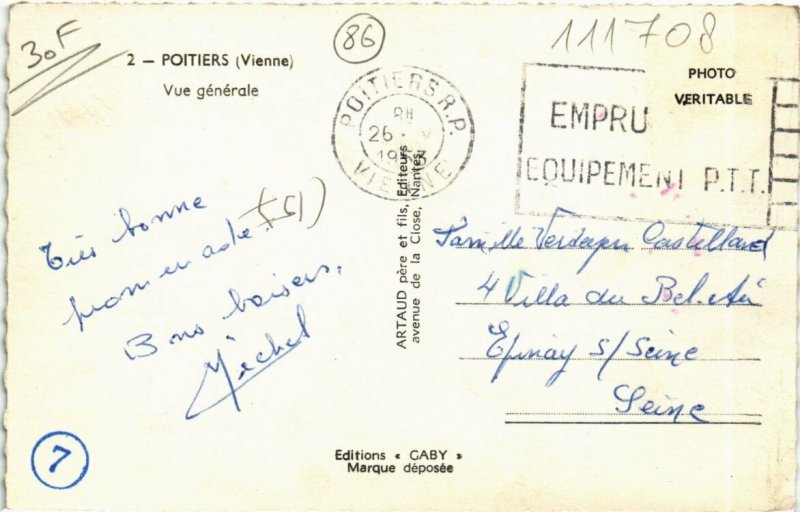 30F
86
111708
2 — POITIERS (Vienne)
Vue générale
POITIERS R.P.
26
VIENNE
PHOTO
VERITABLE
EMPRU
EQUIPEMENT P.T.T.
Très bonne
promenade.
Bons baisers,
Michel
7
ARTAUD père et fils, Editeurs
avenue de la Close, Nantes
Famille Castelland
4 Villa du Bel-Air
Epinay s/Seine
Seine
Editions « GABY »
Marque déposée